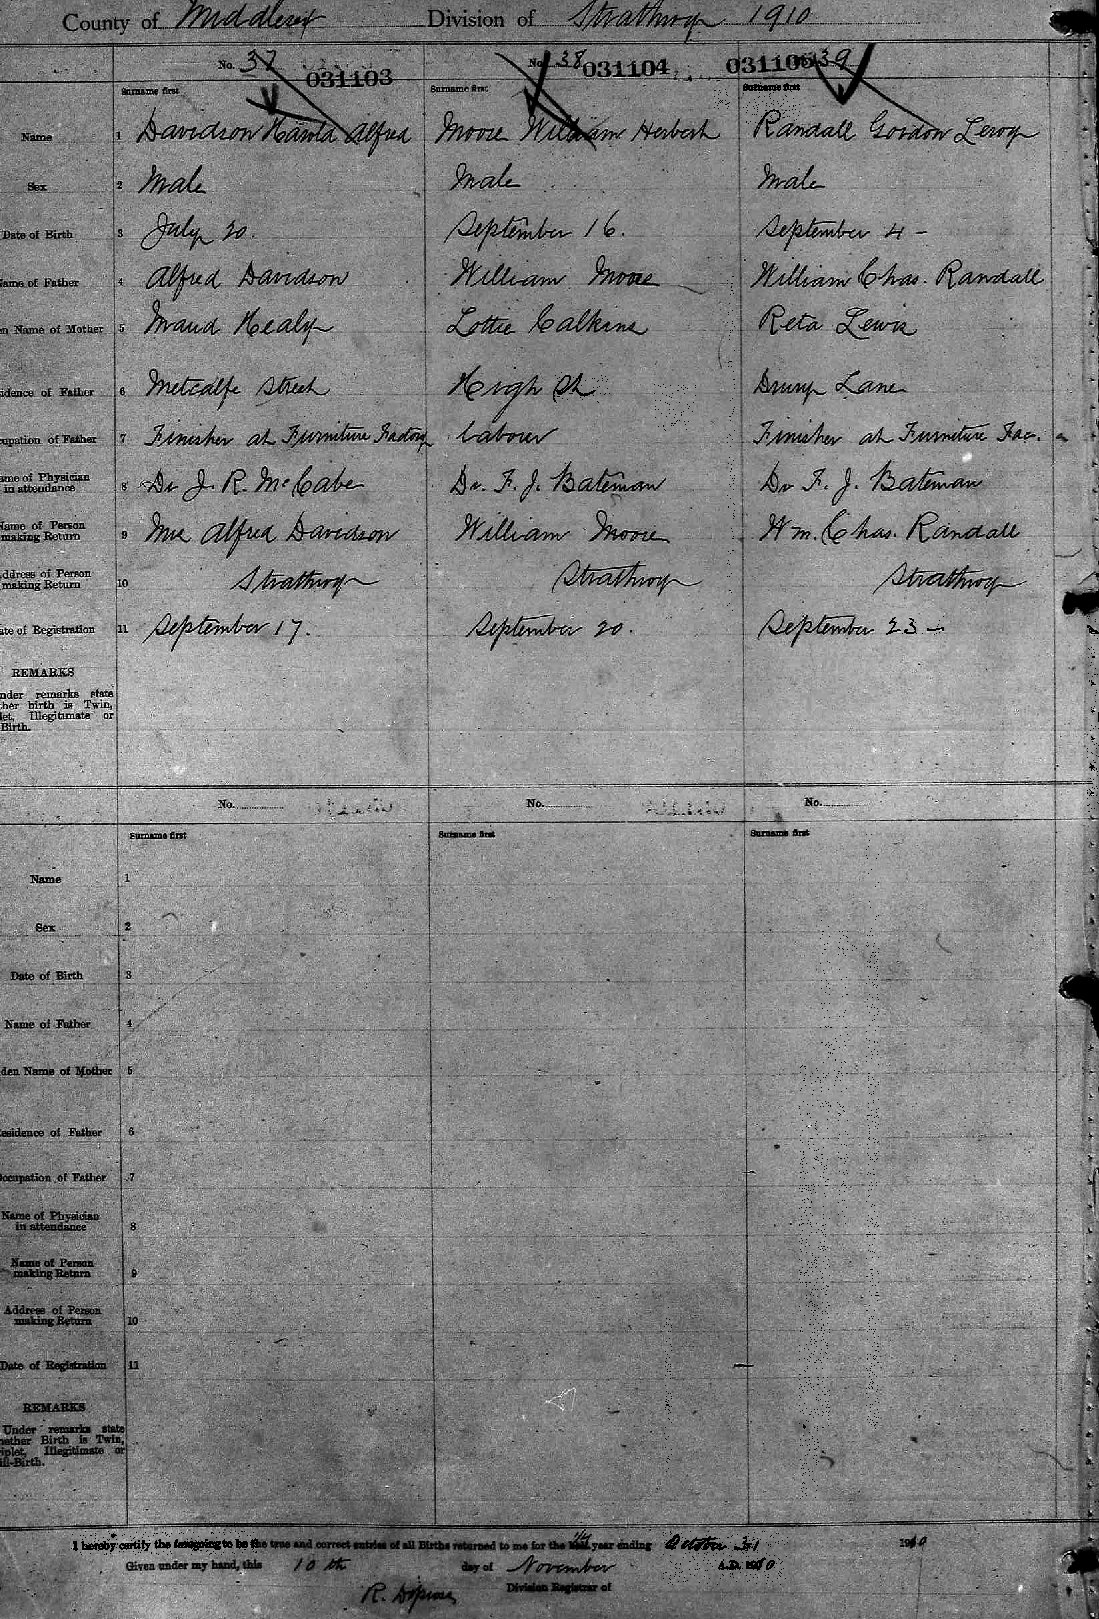 County of Middlesex Division of Strathroy 1910
No. 37 031103 No. 38 031104 031105 39
Surname first Surname first Surname first
Name 1 Davidson Harold Alfred Moore William Herbert Randall Gordon Leroy
Sex 2 Male Male Male
Date of Birth 3 July 20. September 16. September 4 -
ame of Father 4 Alfred Davidson William Moore William Chas. Randall
en Name of Mother 5 Maud Healy Lottie Calkins Reta Lewis
idence of Father 6 Metcalfe Street High St Drury Lane
cupation of Father 7 Finisher at Furniture Factory labour Finisher at Furniture Fac.
ame of Physician
in attendance 8 Dr J. R. McCabe Dr. F. J. Bateman Dr F. J. Bateman
Name of Person
making Return 9 Mrs Alfred Davidson William Moore Wm. Chas. Randall
ddress of Person
making Return 10 Strathroy Strathroy Strathroy
ate of Registration 11 September 17. September 20. September 23 -
REMARKS
nder remarks state
ther birth is Twin,
let, Illegitimate or
Birth.
No. No. No.
Surname first Surname first Surname first
Name 1
Sex 2
Date of Birth 3
Name of Father 4
den Name of Mother 5
esidence of Father 6
Occupation of Father 7
Name of Physician
in attendance 8
Name of Person
making Return 9
Address of Person
making Return 10
Date of Registration 11
REMARKS
Under remarks state
hether Birth is Twin,
iplet, Illegitimate or
ill-Birth.
I hereby certify the foregoing to be the true and correct entries of all Births returned to me for the year ending October 31 1910
Given under my hand, this 10th day of November A.D. 1910
R.
Division Registrar of